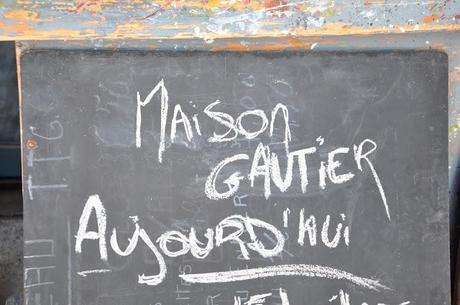 Maison
GAUTIER
Aujourd'hui